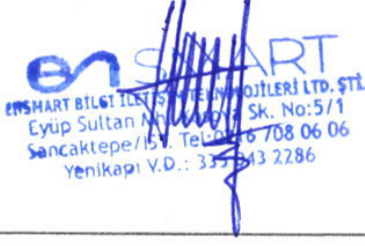 en SMART
ENSMART BİLGİ İLETİŞİM TEKNOLOJİLERİ LTD. ŞTİ.
Eyüp Sultan Sk. No:5/1
Sancaktepe/İST. Tel: 708 06 06
Yenikapı V.D.: 2286